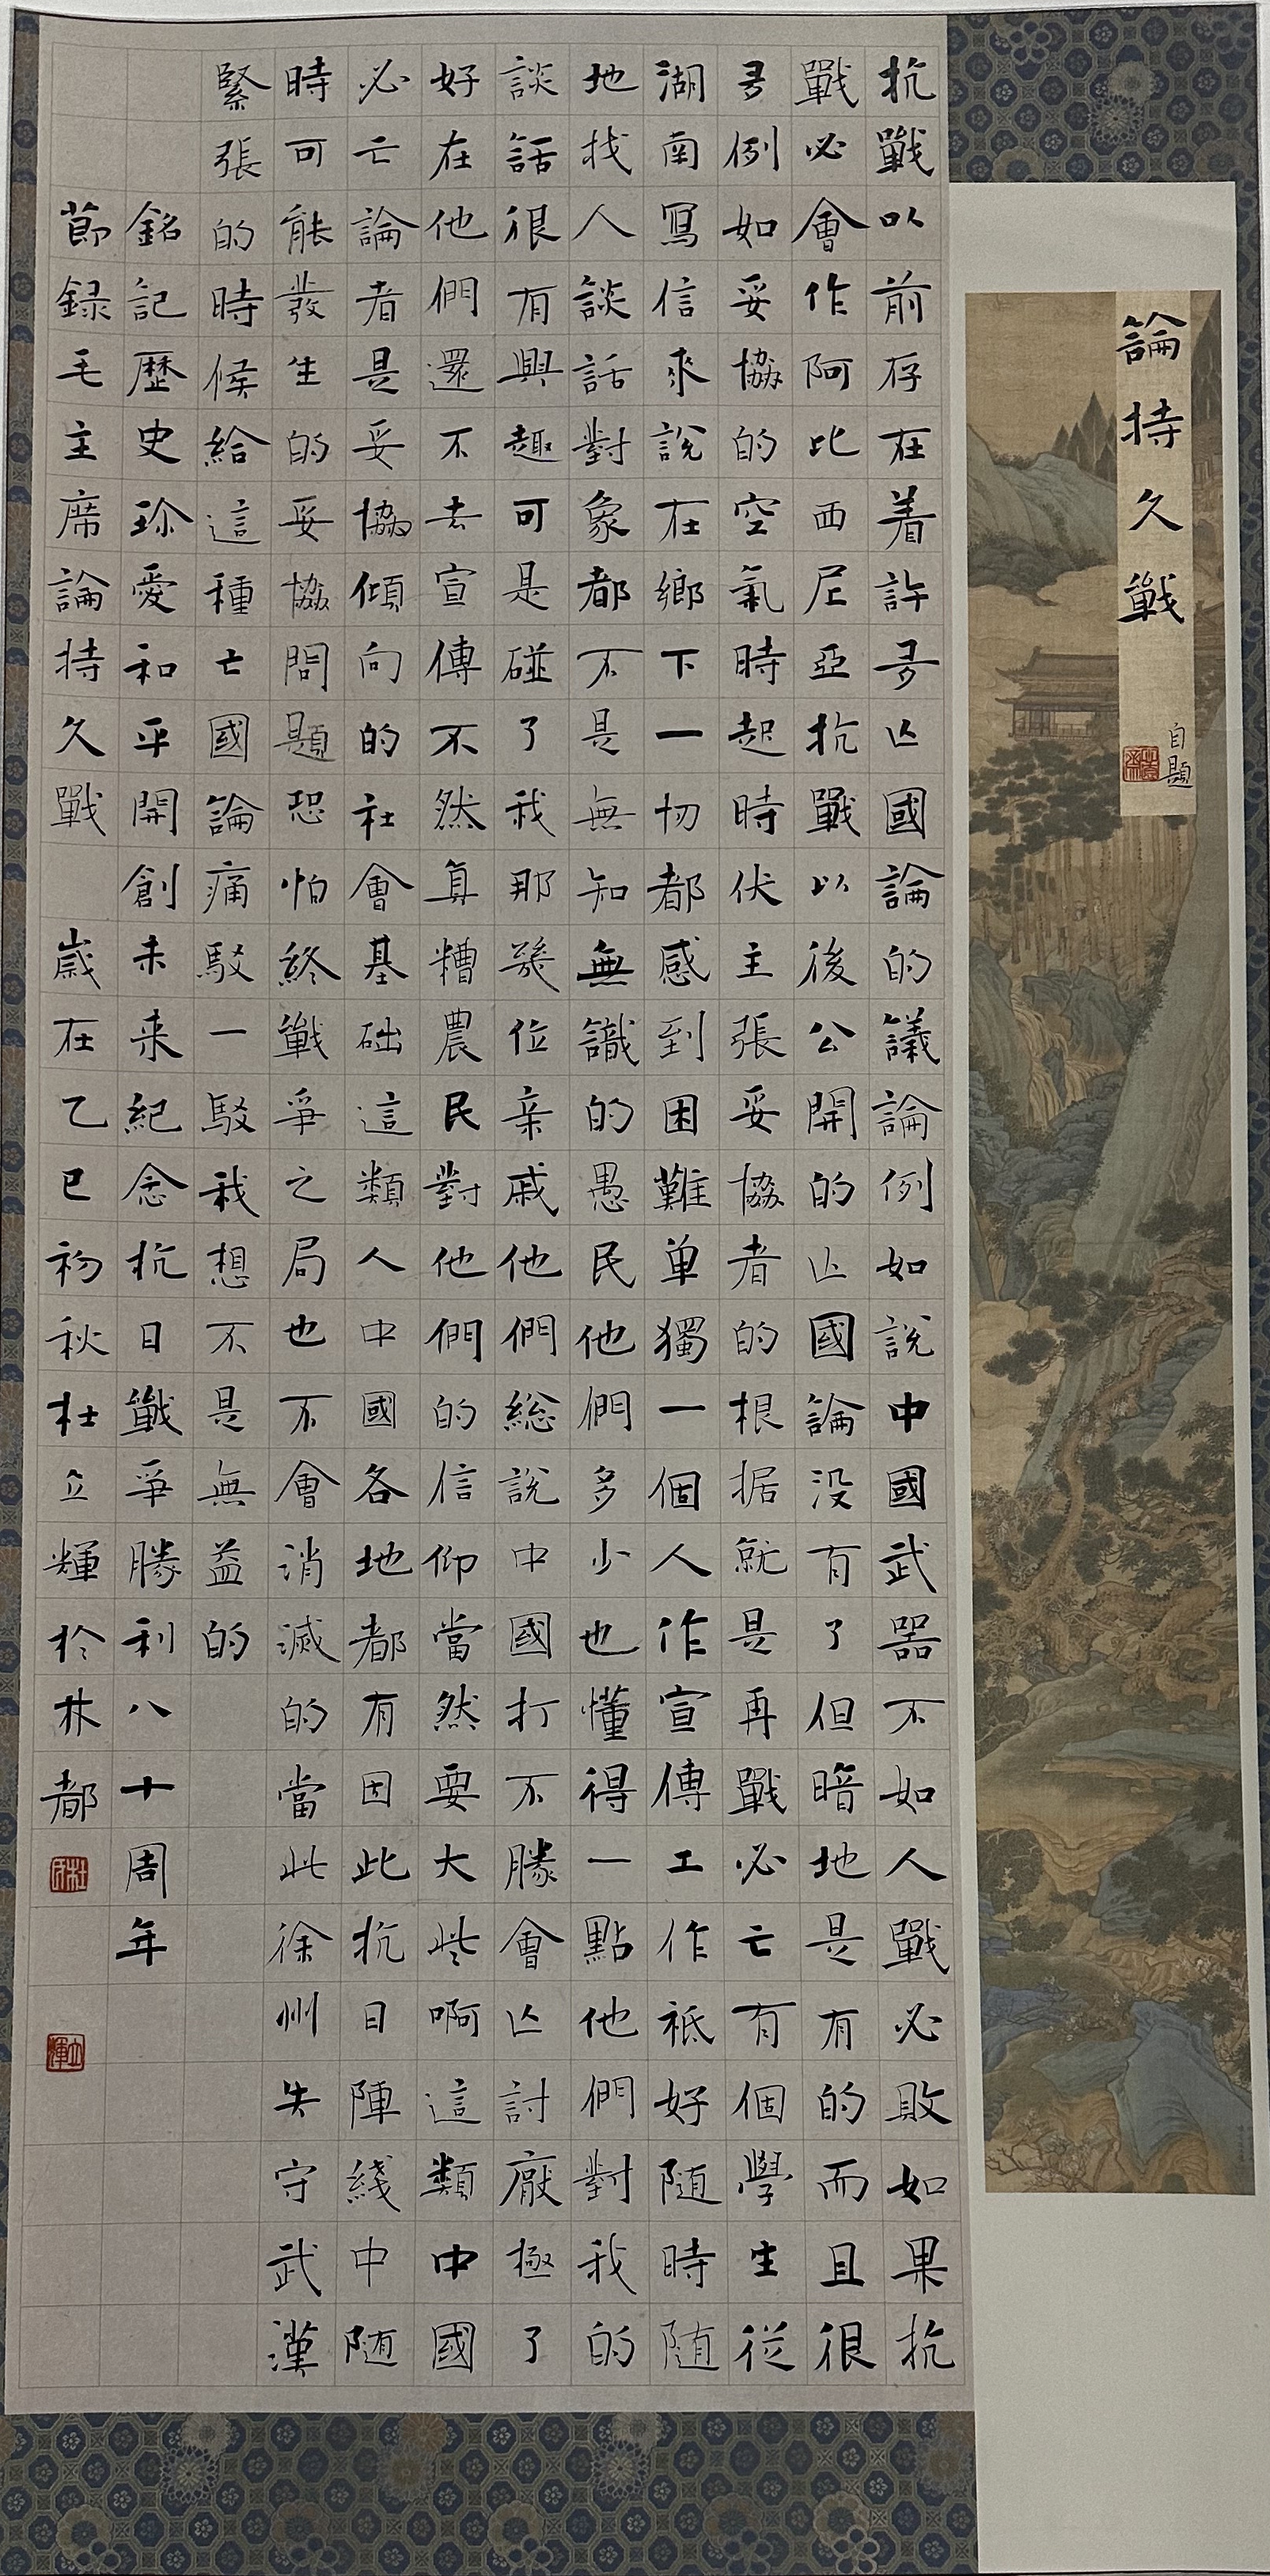 論持久戰
自題
抗戰以前存在着許多亡國論的議論例如說中國武器不如人戰必敗如果抗
戰必會作阿比西尼亞抗戰以後公開的亡國論没有了但暗地是有的而且很
多例如妥協的空氣時起時伏主張妥協者的根据就是再戰必亡有個學生從
湖南寫信來說在鄉下一切都感到困難单獨一個人作宣傳工作祗好随時随
地找人談話對象都不是無知無識的愚民他們多少也懂得一點他們對我的
談話很有興趣可是碰了我那幾位亲戚他們總說中國打不勝會亡討厭極了
好在他們還不去宣傳不然真糟農民對他們的信仰當然要大些啊這類中國
必亡論者是妥協傾向的社會基础這類人中國各地都有因此抗日陣綫中随
時可能發生的妥協問題恐怕終戰爭之局也不會消滅的當此徐州失守武漢
緊張的時候給這種亡國論痛駁一駁我想不是無益的
銘記歷史珍愛和平開創未来紀念抗日戰爭勝利八十周年
節録毛主席論持久戰 歲在乙巳初秋杜立輝於林都
立輝